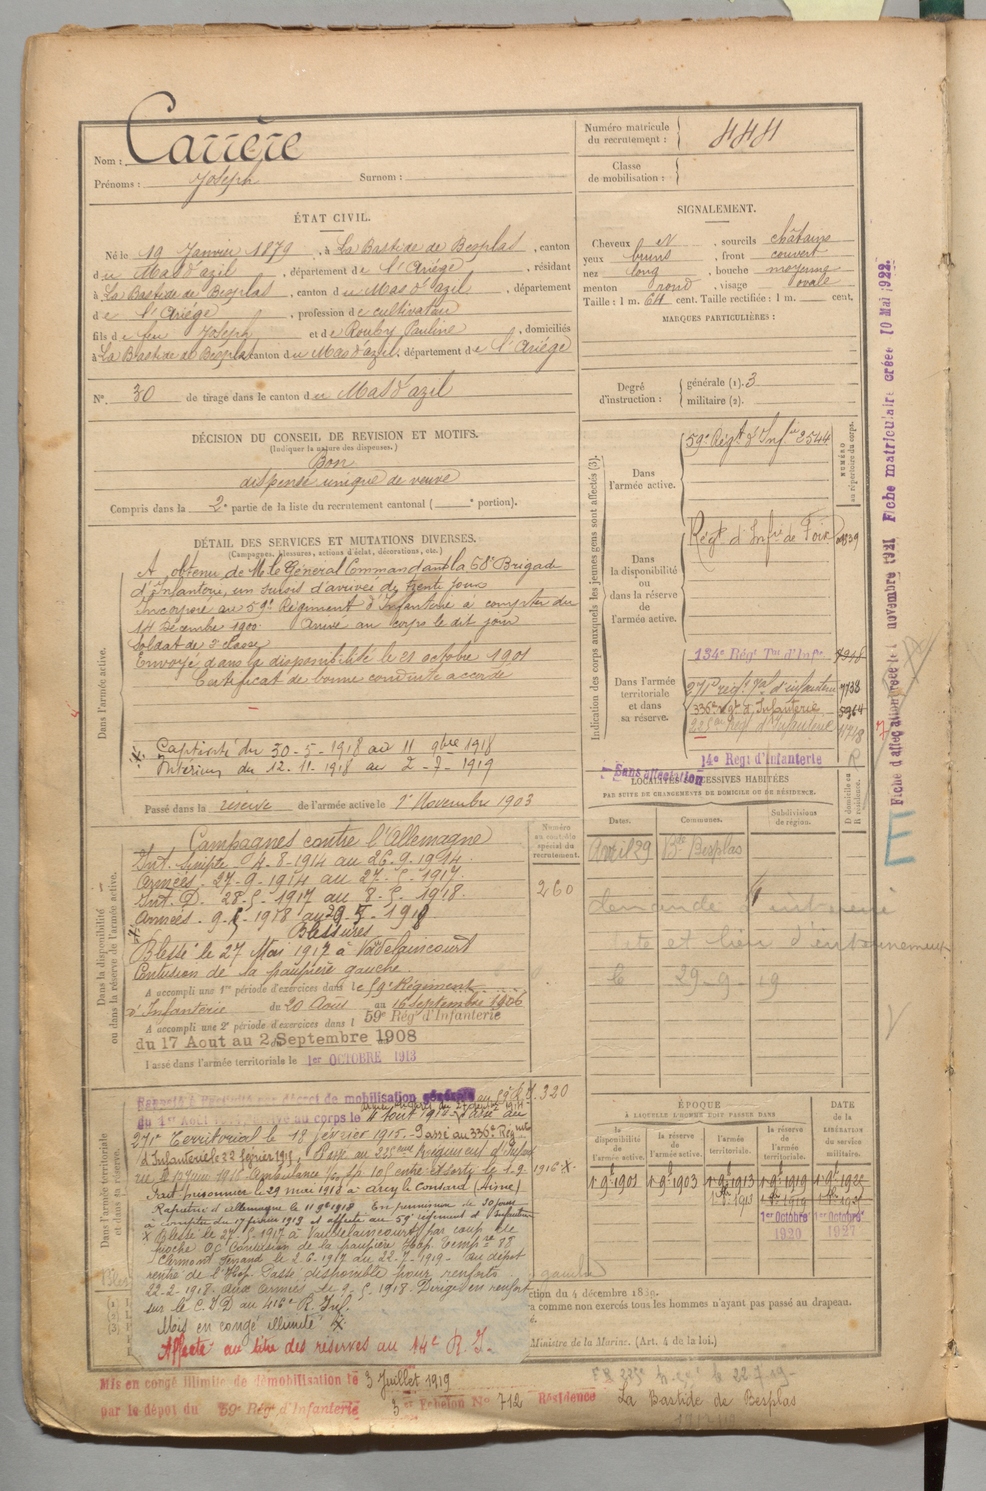 Nom : Carrère
Prénoms : Joseph Surnom :
Numéro matricule du recrutement : 444
Classe de mobilisation :
ÉTAT CIVIL.
Né le 19 Janvier 1879, à La Bastide de Besplas, canton
du Mas d'azil, département de l'Ariège, résidant
à La Bastide de Besplas, canton du Mas d'azil, département
de l'Ariège, profession de cultivateur
fils de feu Joseph et de Rouby Pauline, domiciliés
à La Bastide de Besplas canton du Mas d'azil, département de l'Ariège
N° 30 de tirage dans le canton du Mas d'azil
SIGNALEMENT.
Cheveux N, sourcils châtains
yeux bruns, front couvert
nez long, bouche moyenne
menton rond, visage ovale
Taille : 1 m. 64 cent. Taille rectifiée : 1 m. cent.
MARQUES PARTICULIÈRES :
Degré d'instruction : générale (1). 3
militaire (2).
DÉCISION DU CONSEIL DE REVISION ET MOTIFS.
(Indiquer la nature des dispenses.)
Bon
dispensé unique de veuve
Compris dans la 2e partie de la liste du recrutement cantonal ( e portion).
DÉTAIL DES SERVICES ET MUTATIONS DIVERSES.
(Campagnes, blessures, actions d'éclat, décorations, etc.)
Dans l'armée active.
A obtenu de M. le Général Commandant la 68e Brigade
d'Infanterie, un sursis d'arrivée de trente jours
Incorporé au 59e Régiment d'Infanterie à compter du
14 Décembre 1900. Arrivé au corps le dit jour
Soldat de 2e classe
Envoyé dans la disponibilité le 21 octobre 1901
Certificat de bonne conduite accordé
Captivité du 30-5-1918 au 11 9bre 1918
Intérieur du 12.11.1918 au 2-7-1919
Passé dans la réserve de l'armée active le 1er Novembre 1903
Indication des corps auxquels les jeunes gens sont affectés (3).
NUMÉRO au répertoire du corps.
Dans l'armée active.
59e Régt d'Infie 2544
Dans la disponibilité ou dans la réserve de l'armée active.
Régt d'Infie de Foix
Dans l'armée territoriale et dans sa réserve.
134e Régt Tal d'Infie
271e regt Tal d'infanterie 7738
336e Rgt d'Infanterie 5964
225e Rgt d'Infanterie
14e Regt d'Infanterie
Sans affectation
Dans la disponibilité ou dans la réserve de l'armée active.
Numéro au contrôle spécial du recrutement.
260
Campagnes contre l'Allemagne
Int. Simple - 4.8.1914 au 26.9.1914.
Armées - 27-9-1914 au 27-5-1917
Int. D. 28-5-1917 au 8-5-1918.
Armées - 9-5-1918 au 29-5-1918
Blessures
Blessé le 27 Mai 1917 à Vadelaincourt
Contusion de la paupière gauche
A accompli une 1re période d'exercices dans le 59e Régiment
d'Infanterie du 20 Août au 16 septembre 1906
A accompli une 2e période d'exercices dans l 59e Régt d'Infanterie
du 17 Aout au 2 Septembre 1908
Passé dans l'armée territoriale le 1er OCTOBRE 1913
LOCALITÉS SUCCESSIVES HABITÉES
PAR SUITE DE CHANGEMENTS DE DOMICILE OU DE RÉSIDENCE.
Dates. Communes. Subdivisions de région. D domicile ou R résidence.
Avril 29 Bde Besplas R
demande
date et lieu d'internement
le 29-9-19
Dans l'armée territoriale et dans sa réserve.
Rappelé à l'activité par décret de mobilisation générale
du 1er Août 1914. Arrivé au corps le 4 Août 1914. Passé au
271e Territorial le 18 février 1915. Passé au 336e Régt
d'Infanterie le 22 février 1915. Passé au 225ème Régiment d'Infan
Fait prisonnier le 29 mai 1918 à Arcy le Consard (Aisne)
Rapatrié d'Allemagne le 11 9bre 1918 En permission de 30 jours
à compter du 17 février 1919 et affecté au 59e régiment d'Infanterie
X Blessé le 27-5-1917 à Vaudelaincourt par coup de
pioche OG Contusion de la paupière Hôp. Tempre 88
Clermont Ferrand le 2.6.1917 du 22.7.1919 au dépôt
rentré de l'Hop. Passé disponible pour renforts
22-2-1918. aux armées le 9-5-1918. Dirigé en renfort
sur le C.I.D au 416e R. Inf.
Mis en congé illimité
Affecté au titre des réserves au 14e R.I.
320
ÉPOQUE
À LAQUELLE L'HOMME DOIT PASSER DANS
la disponibilité de l'armée active. la réserve de l'armée active. l'armée territoriale. la réserve de l'armée territoriale.
DATE de la LIBÉRATION du service militaire.
1-9-1901 1-9-1903 1-9-1913 1-9-1919
1er Octobre 1920 1er Octobre 1927
ction du 4 décembre 1889.
a comme non exercés tous les hommes n'ayant pas passé au drapeau.
Ministre de la Marine. (Art. 4 de la loi.)
Mis en congé illimité de démobilisation le 3 Juillet 1919
par le dépôt du 59e Rég d'Infanterie 3e Echelon No 712 Résidence La Bastide de Besplas
Fiche matriculaire créée 10 Mai 1922.
E